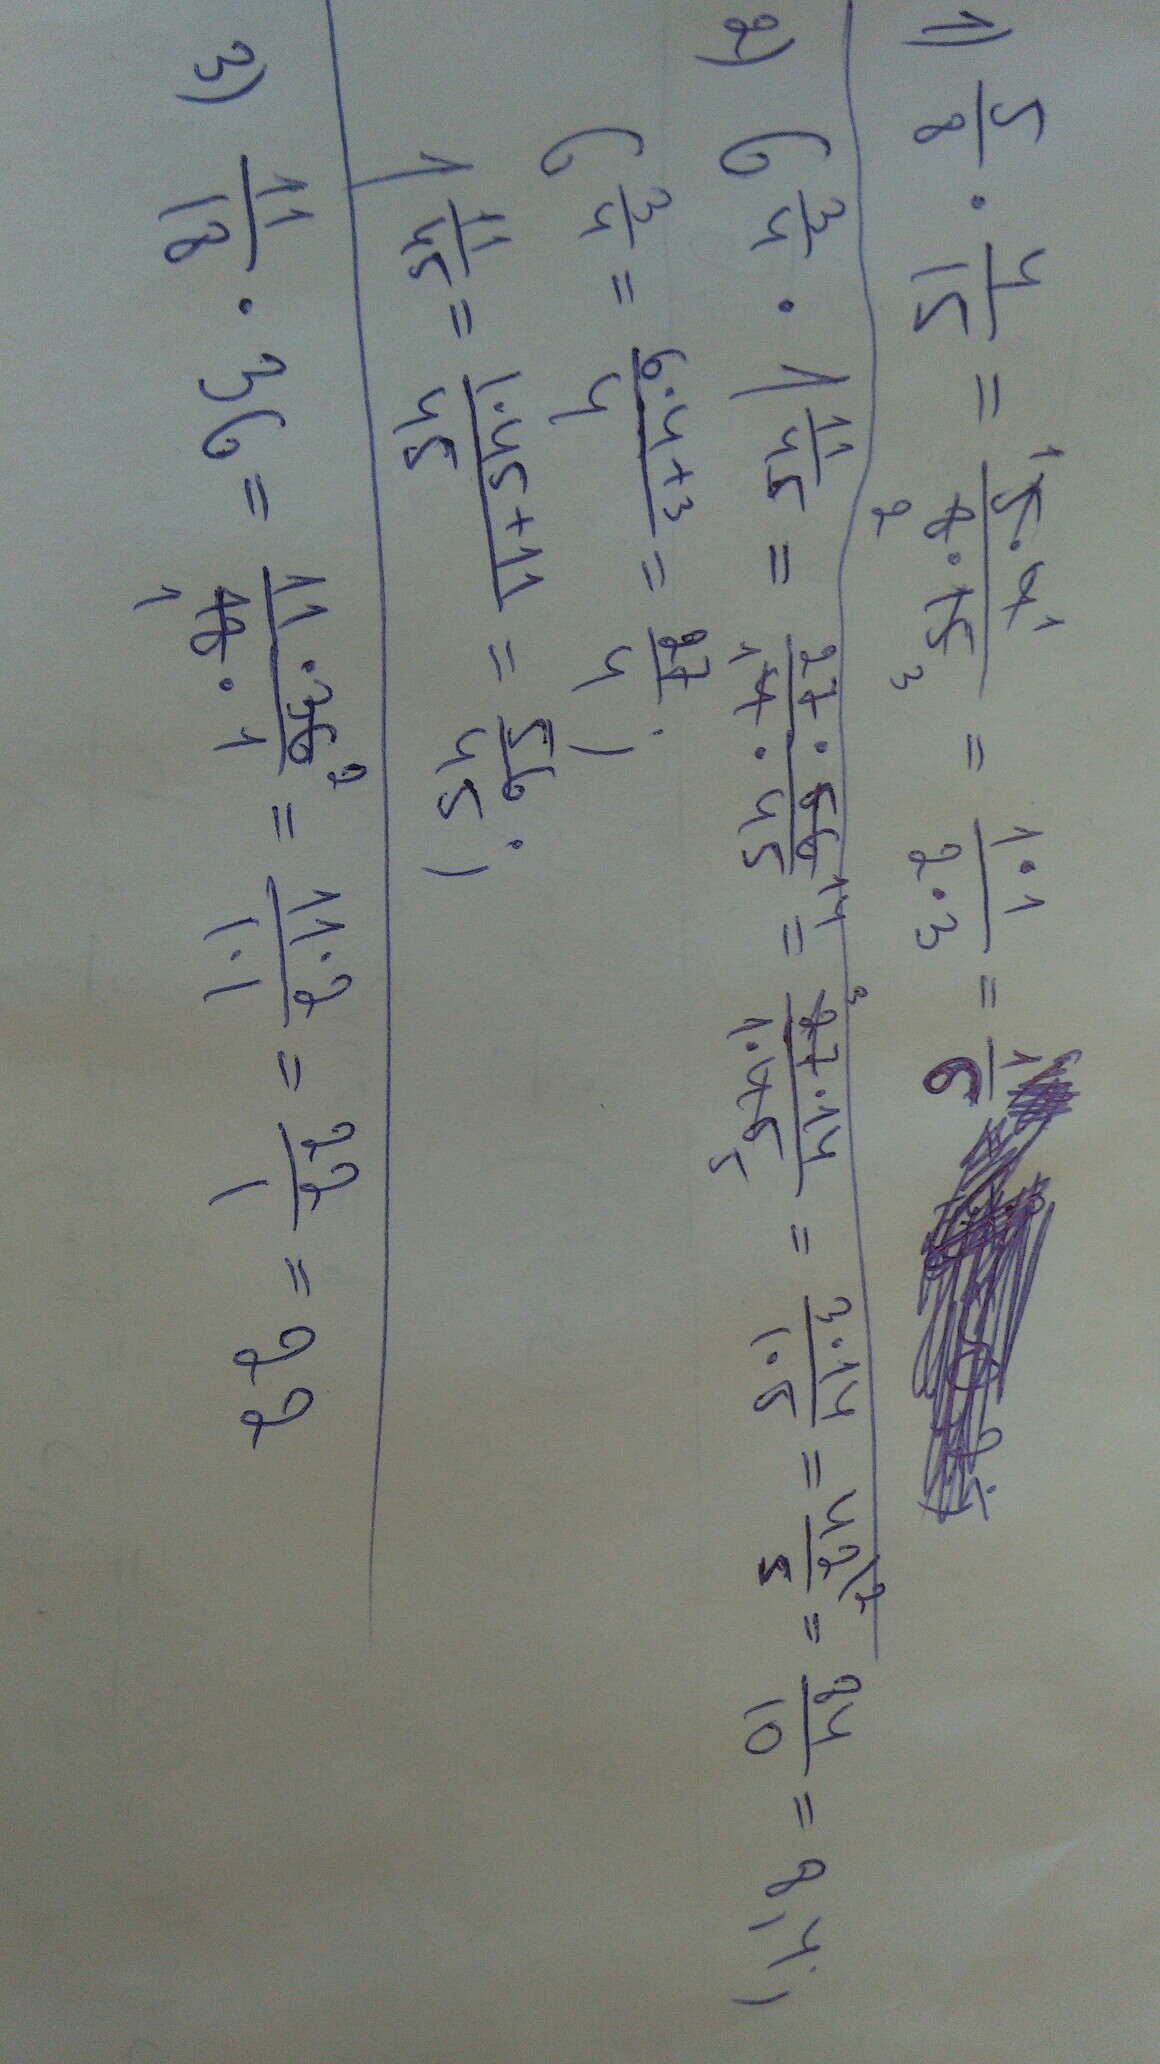 1) 5/8 · 4/15 = 5·4/8·15 = 1·1/2·3 = 1/6
2) 6 3/4 · 1 11/45 = 27·56/4·45 = 27·14/1·45 = 3·14/1·5 = 42/5 = 84/10 = 8,4;
6 3/4 = 6·4+3/4 = 27/4;
1 11/45 = 1·45+11/45 = 56/45;
3) 11/18 · 36 = 11·36/18·1 = 11·2/1·1 = 22/1 = 22